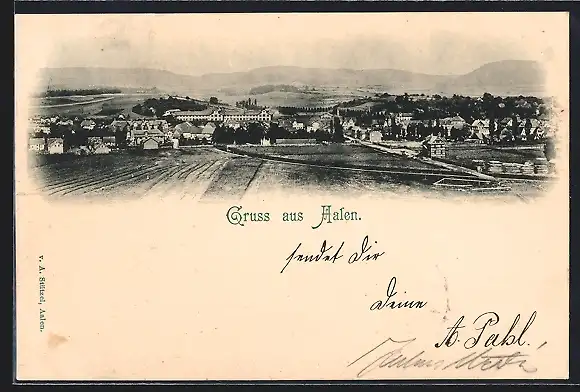 Gruss aus Aalen.
sendet Dir
Deine
A. Pahl.
v. A. Stützel, Aalen.